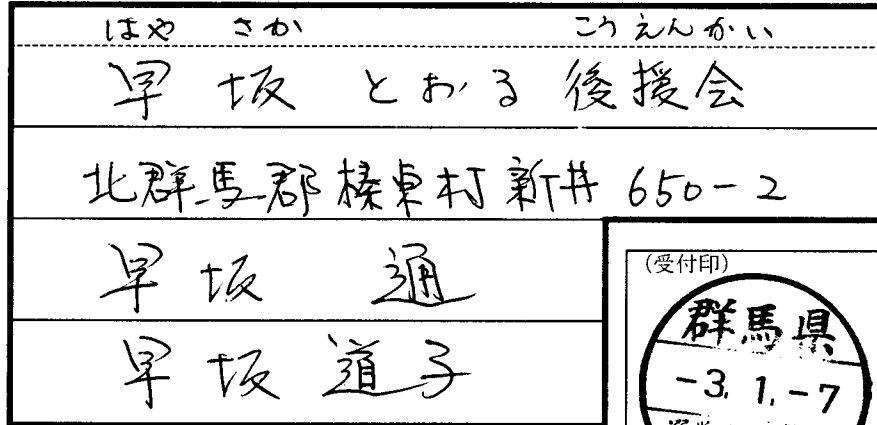 はや さか こうえんかい
早坂 とおる 後援会
北群馬郡榛東村新井 650-2
早坂 通
早坂 道子
(受付印)
群馬県
-3.1.-7